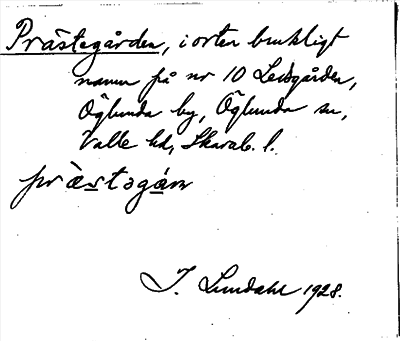 Prästegården, i orten brukligt
namn på nr 10 Ledsgården,
Öglunda by, Öglunda sn,
Valle hd, Skarab. l.
præstəgán
I. Lundahl 1928.